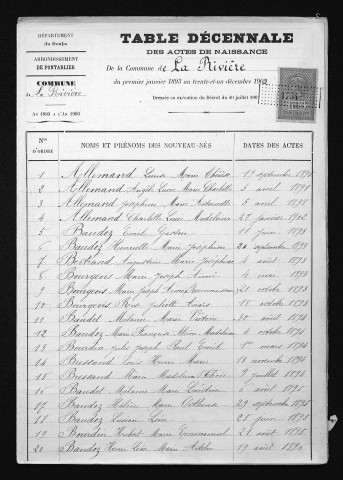 DÉPARTEMENT
du Doubs
ARRONDISSEMENT
DE PONTARLIER
COMMUNE
de La Rivière
An 1893 à l'An 1903
TABLE DÉCENNALE
DES ACTES DE NAISSANCE
De la Commune de La Rivière
du premier janvier 1893 au trente-et-un décembre 1902
Dressée en exécution du Décret du 20 juillet 1807
Nos D'ORDRE
NOMS ET PRÉNOMS DES NOUVEAU-NÉS
DATES DES ACTES
1 Allemand Louise Marie Thérèse 19 septembre 1894
2 Allemand Angèle Marie Charlotte 5 avril 1898
3 Allemand Joséphine Marie Antoinette 5 avril 1898
4 Allemand Charlotte Marie Madeleine 27 janvier 1902
5 Baudoz Emile Gaston 11 juin 1893
6 Baudoz Henriette Marie Joséphine 20 septembre 1893
7 Bertrand Augustine Marie Joséphine 4 août 1893
8 Bourgeois Marie Joseph 4 mai 1893
9 Bourgeois Marie Joseph 21 octobre 1893
10 Bourgeois Rose Juliette 18 octobre 1893
11 Baudet Mélanie Marie Victoire 30 août 1894
12 Baudoz Marie Françoise Madeleine 4 octobre 1894
13 Bourdin Jules Joseph Paul Emile 1er mars 1894
14 Bressand Louis Henri Marie 18 novembre 1894
15 Bressand Marie Madeleine 9 juillet 1894
16 Baudet Mélanie Marie 1 août 1895
17 Baudoz Hélène Marie 29 septembre 1895
18 Baudoz Lucien Léon 25 juin 1895
19 Bourdin Hubert Marie Emmanuel 21 août 1895
20 Baudoz Henri Léon Marie 19 août 1896